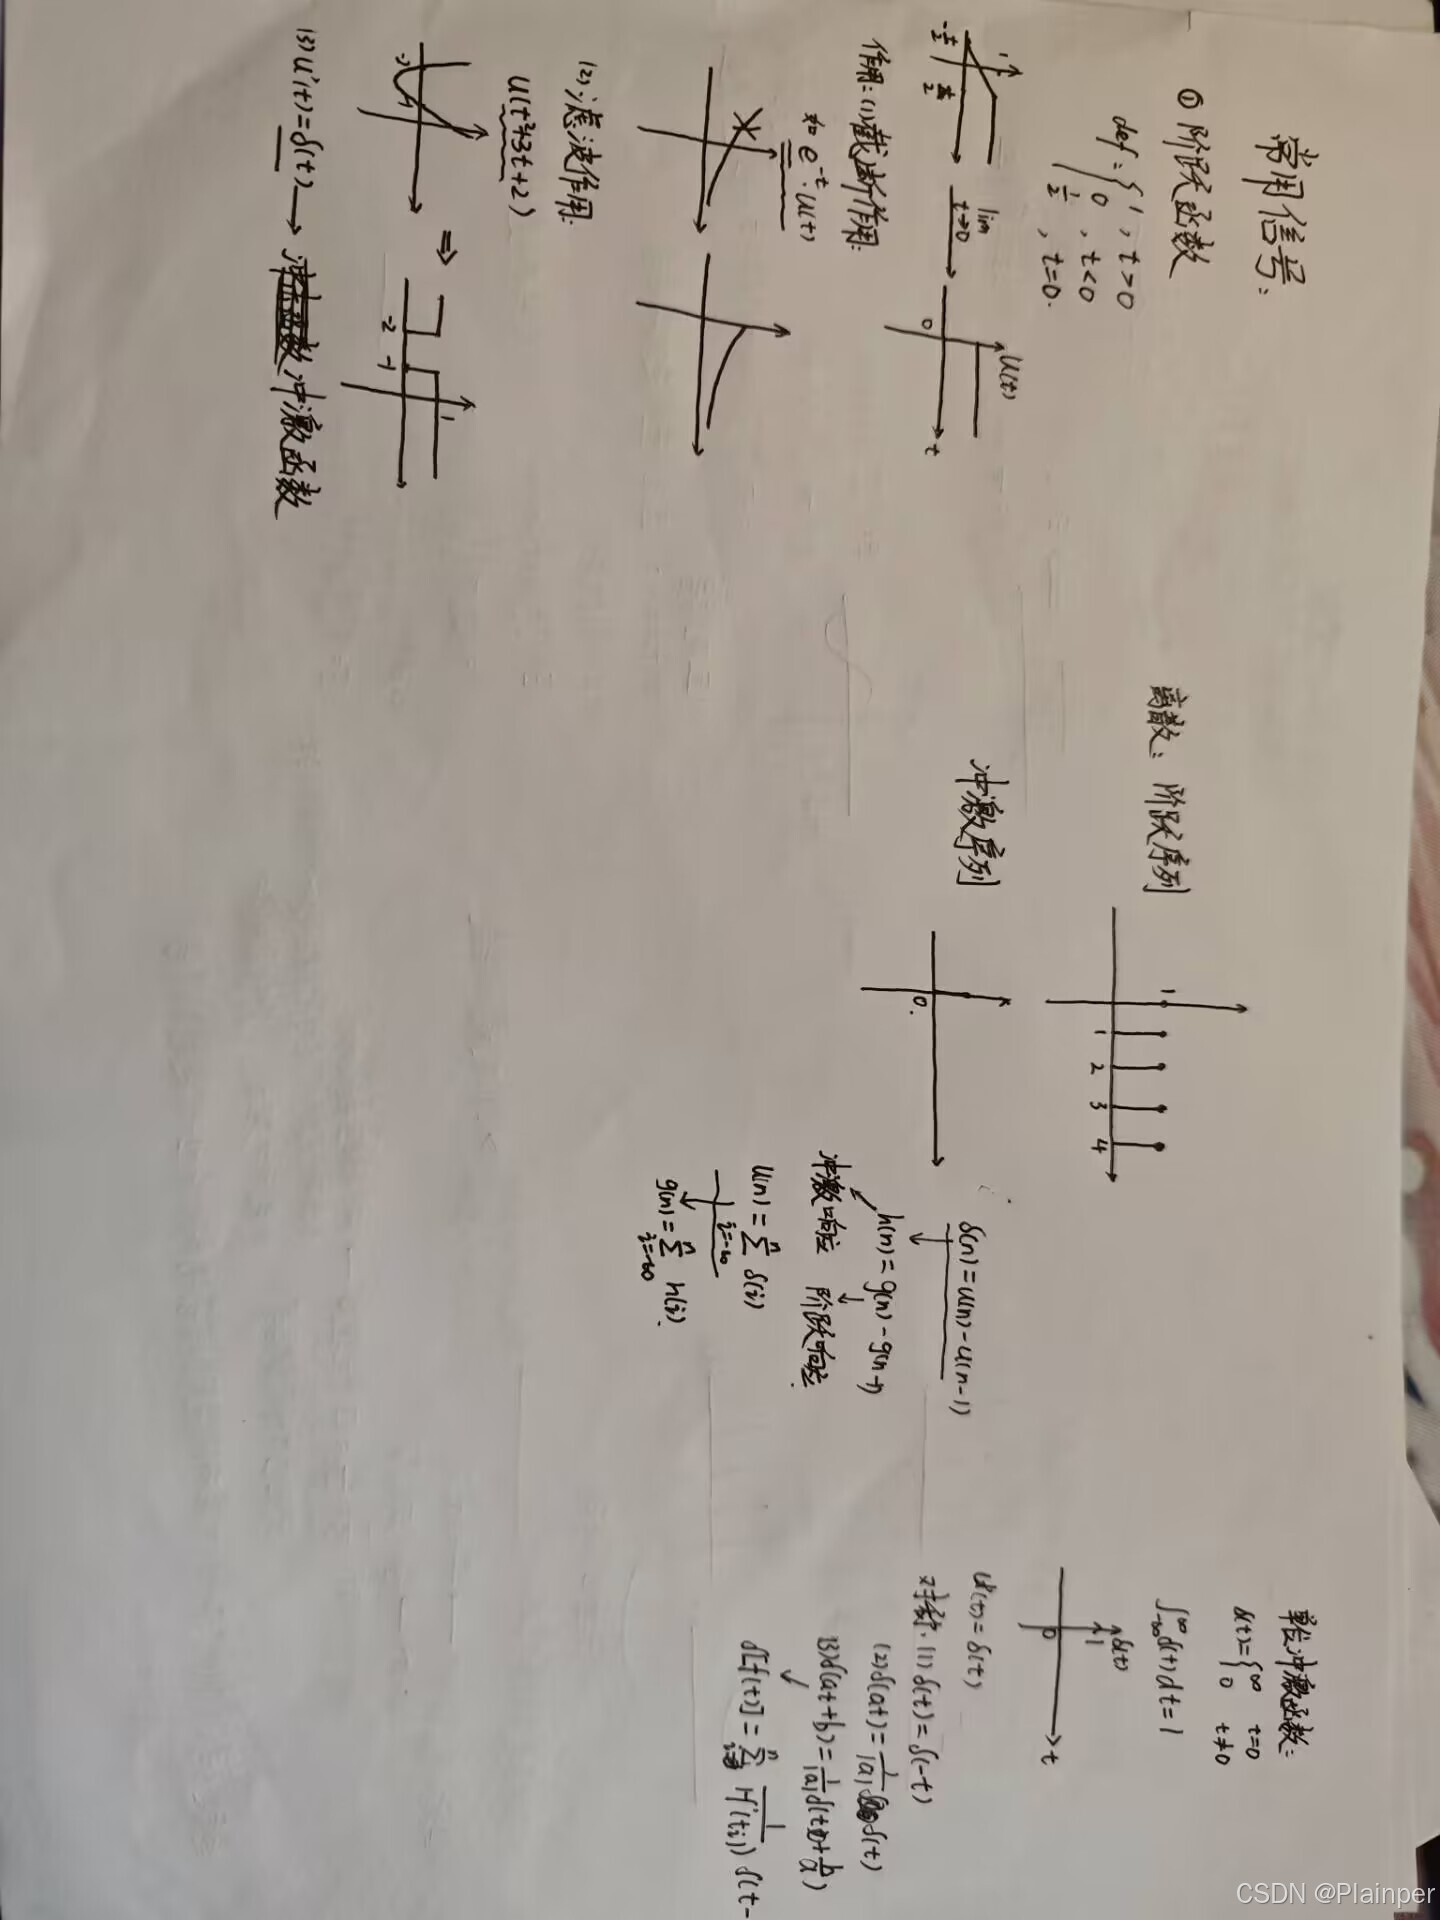 常用信号：
① 阶跃函数
def：{ 1 , t>0
0 , t<0
1/2 , t=0.
1
-τ/2
lim t→0
U(t)
0
t
作用：(1)截断作用：
如 e^-t·u(t)
(2)滤波作用：
U(t²+3t+2)
-2 -1
⇒
-2 -1
1
(3) U'(t)=δ(t) → 冲激函数
离散：阶跃序列
1
1 2 3 4
冲激序列
0
δ(n)=u(n)-u(n-1)
h(n)=g(n)-g(n-1)
冲激响应 阶跃响应
u(n)=Σ(i=-∞→n) δ(i)
g(n)=Σ(i=-∞→n) h(i).
单位冲激函数：
δ(t)={ ∞ t=0
0 t≠0
∫-∞^∞ δ(t)dt=1
δ(t)
1
0
t
u'(t)=δ(t)
(1) δ(t)=δ(-t)
(2) δ(at)=1/|a| δ(t)
(3) δ(at+b)=1/|a| δ(t+b/a)
δ[f(t)]=Σ 1/|f'(ti)| δ(t-
CSDN @Plainper